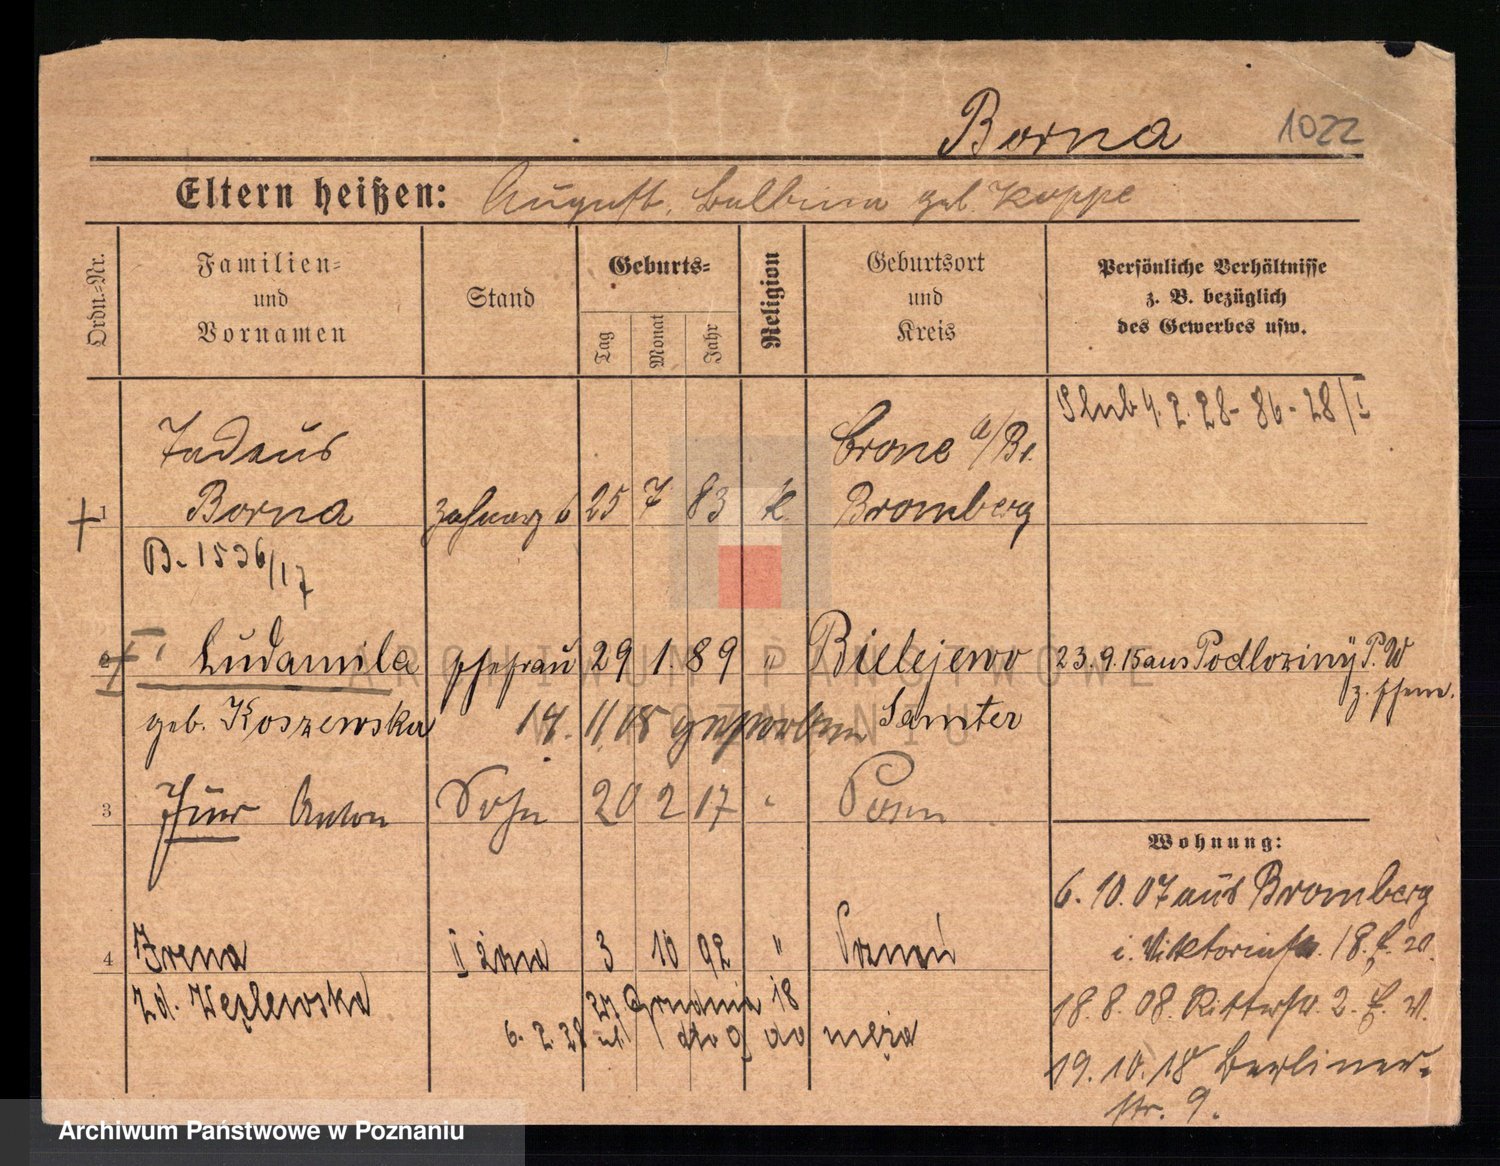 Borna 1022
Eltern heißen: August, Balbina geb. Koppe
Ordn.-Nr.
Familien- und Vornamen
Stand
Geburts-
Tag
Monat
Jahr
Religion
Geburtsort und Kreis
Persönliche Verhältnisse
z. B. bezüglich
des Gewerbes usw.
Slub 4. 2. 28 - 86 - 28/I
Tadäus Crone a/Br.
1 Borna Zahnarzt 25 7 83 k. Bromberg
B. 1536/17
Ludamila Ehefrau 29 1. 89 " Bielejewo 23. 9. 15 aus Podloziny P. W
geb. Koszewska 14. 11 18 gestorben Samter
3 Anton Sohn 20 2 17 " Posen
Wohnung:
6. 10. 07 aus Bromberg
i. Viktoriastr. 18.
4 Irena II żona 3 10 92 " Poznań
zd. Węzlewska 27 Grudnia 18
18. 8. 08. Ritterstr. 2.
6. 2. 28 do męża
19. 10. 18 Berliner-
str. 9.
ARCHIWUM PAŃSTWOWE
W POZNANIU
Archiwum Państwowe w Poznaniu